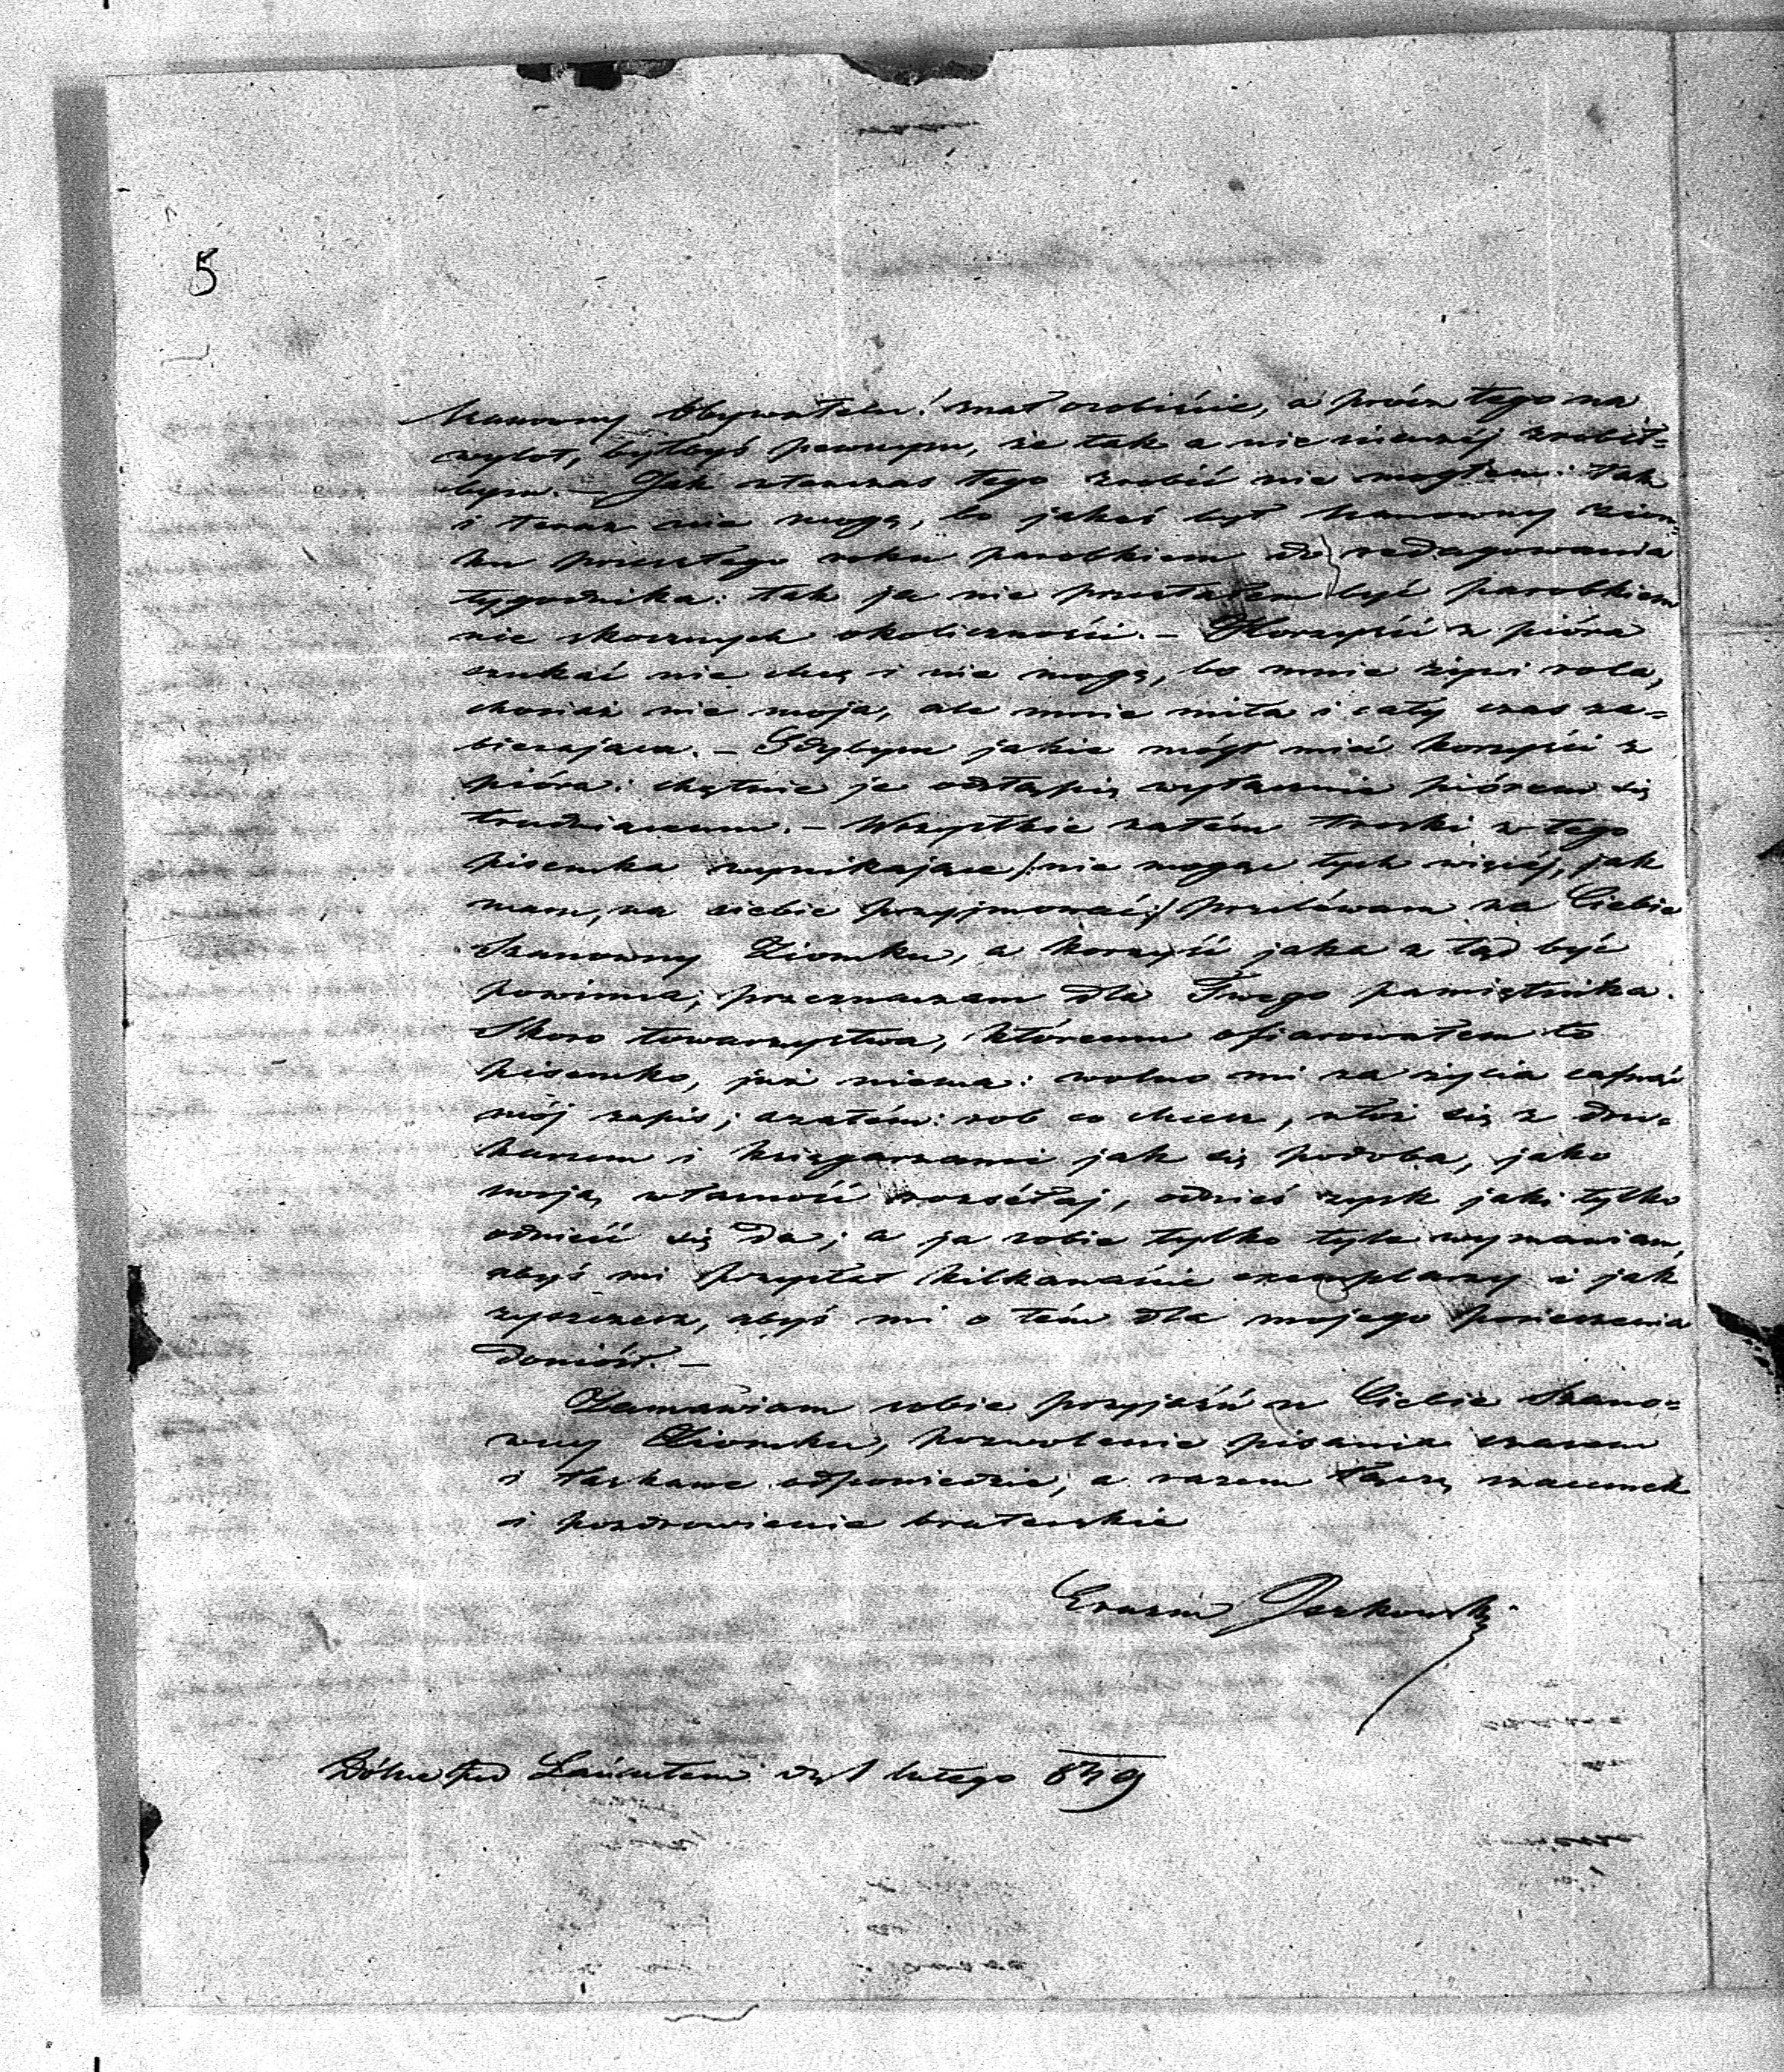 5
Szanowny Obywatelu! znał osobiście, a prócz tego na
wylot, byłbyś pewnym, że tak a nie inaczéj zrobił=
bym. – Jak wtenczas tego zrobić nie mogłem: tak
i teraz nie mogę, bo jakeś był Szanowny Ziom=
ku przeszłego roku parobkiem do redagowania
tygodnika: tak ja nie przestałem być parobkiem
nie skocznych okoliczności. – Korzyści z pióra
szukać nie chcę i nie mogę, bo mnie żywi rola,
chociaż nie moja, ale mnie miła i cały czas za=
bierająca. – Gdybym jakie mógł mieć korzyści z
pióra: chętnie je odstąpię wyłącznie piórem się
trudniącemu. – Wszystkie zatém troski z tego
pisemka wynikające /: nie mogąc tych więcéj, jak
mam, na siebie przyjmować :/ przeléwam na Ciebie
Szanowny Ziomku, a korzyść jaka z tąd być
powinna, przeznaczam dla Twego pamiętnika.
Skoro towarzystwa, któremu ofiarowałem to
pisemko, już niema: wolno mi za życia cofnąć
mój zapis; a zatém: rob co chcesz, ułóż się z dru=
karzem i księgarzami jak się podoba, jako
swoją własność rozséłaj, odnieś zysk jaki tylko
odnieść się da; a ja sobie tylko tyle wymawiam,
abyś mi przysłał kilkanaście exemplarzy i jak
zyszczesz, abyś mi o tém dla mojego pocieszenia
doniósł. –
Zamawiam sobie przyjaźń u Ciebie Szano=
wny Ziomku, pozwolenie pisania czasem
i łaskawe odpowiedzie, a razem łączę szacunek
i pozdrowienie braterskie
Erazm
Wólka pod Łańcutem d. 1 lutego 849